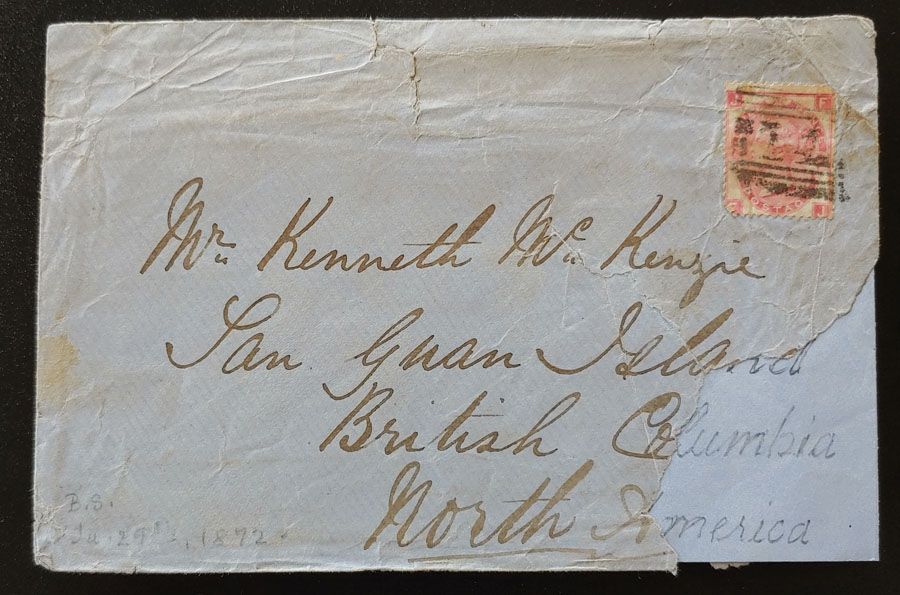 Mr Kenneth Mc Kenzie
San Guan Island
British Columbia
North America
B.S.
29th, 1872.